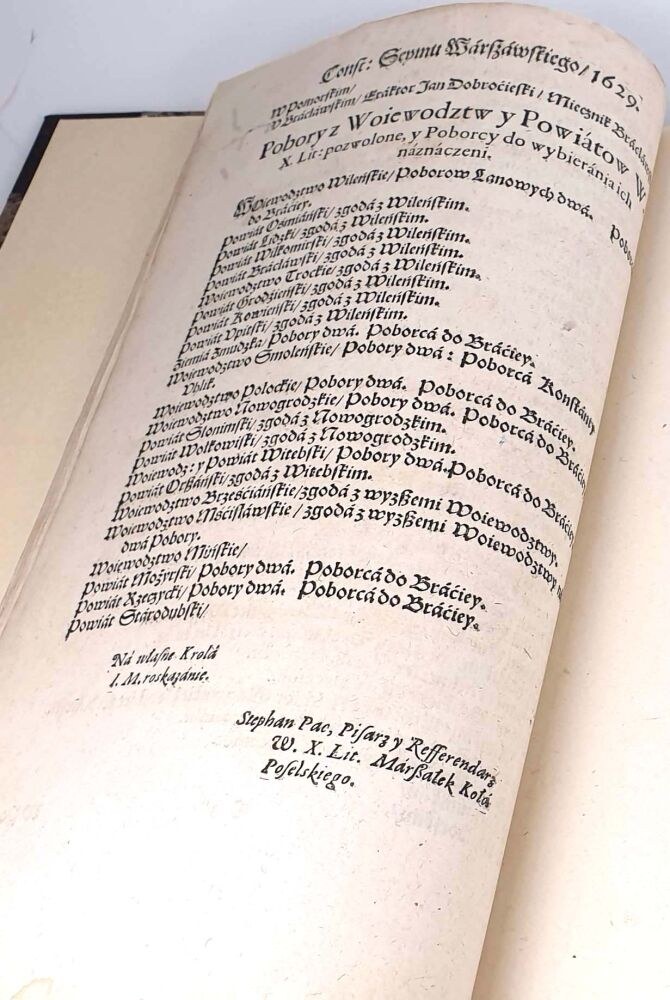 Const: Seymu Wárßáwskiego/ 1629.
W Pomorskim/
W Brácłáwskim/ Exáktor Jan Dobroćieski/ Miecznik Brácłáws
Pobory z Woiewodztw y Powiátow W.
X. Lit: pozwolone, y Poborcy do wybieránia ich
náznáczeni.
Woiewodztwo Wileńskie/ Poborow Lanowych dwá. Pobor
do Bráćiey.
Powiát Ośmiáński/ zgodá z Wileńskim.
Powiát Lidzki/ zgodá z Wileńskim.
Powiát Wiłkomirski/ zgodá z Wileńskim.
Powiát Brácłáwski/ zgodá z Wileńskim.
Woiewodztwo Trockie/ zgodá z Wileńskim.
Powiát Grodźieński/ zgodá z Wileńskim.
Powiát Kowieński/ zgodá z Wileńskim.
Powiát Vpitski/ zgodá z Wileńskim.
Ziemiá Zmudzka/ Pobory dwá. Poborcá do Bráćiey.
Woiewodztwo Smoleńskie/ Pobory dwá: Poborcá Konstánty
Vblik.
Woiewodztwo Połockie/ Pobory dwá. Poborcá do Bráćiey.
Woiewodztwo Nowogrodzkie/ Pobory dwá. Poborcá do Bráćiey
Powiát Słonimski/ zgodá z Nowogrodzkim.
Powiát Wołkowiski/ zgodá z Nowogrodzkim.
Woiewodz: y Powiát Witebski/ Pobory dwá. Poborcá do Bráćiey
Powiát Orßáński/ zgodá z Witebskim.
Woiewodztwo Brześćiáńskie/ zgodá z wyzßemi Woiewodztwy.
Woiewodztwo Mśćisłáwskie/ zgodá z wyzßemi Woiewodztwy
dwá Pobory.
Woiewodztwo Mińskie/
Powiát Mozyrski/ Pobory dwá. Poborcá do Bráćiey.
Powiát Rzeczycki/ Pobory dwá. Poborcá do Bráćiey.
Powiát Stárodubski/
Ná własne Krolá
I. M. roskazánie.
Stephan Pac, Pisarz y Refferendarz
W. X. Lit. Márßałek Kołá
Poselskiego.